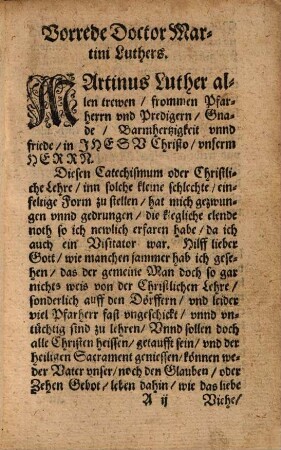 Vorrede Doctor Mar-
tini Luthers.
MArtinus Luther al-
len trewen / frommen Pfar-
herrn vnd Predigern / Gna-
de / Barmhertzigkeit vnnd
friede / in JHESV Christo / vnserm
HERRN.
Diesen Catechismum oder Christli-
che Lehre / inn solche kleine schlechte / ein-
feltige Form zu stellen / hat mich gezwun-
gen vnnd gedrungen / die klegliche elende
noth so ich newlich erfaren habe / da ich
auch ein Visitator war. Hilff lieber
Gott / wie manchen jammer hab ich gese-
hen / das der gemeine Man doch so gar
nichts weis von der Christlichen Lehre /
sonderlich auff den Dörffern / vnd leider
viel Pfarherr fast vngeschickt / vnnd vn-
tüchtig sind zu lehren / Vnnd sollen doch
alle Christen heissen / getaufft sein / vnd der
heiligen Sacrament geniessen / können we-
der Vater vnser / noch den Glauben / oder
Zehen Gebot / leben dahin / wie das liebe
A ij Viehe /